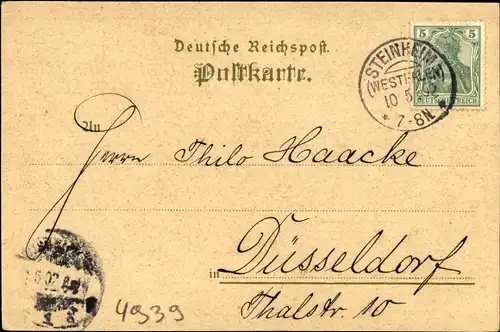 Deutsche Reichspost.
Postkarte.
5 5
DEUTSCHES REICH
STEINHEIM
(WESTFALEN)
10 5
* 7-8N *
An
Herrn Thilo Haacke
in Düsseldorf
Thalstr. 10
4939